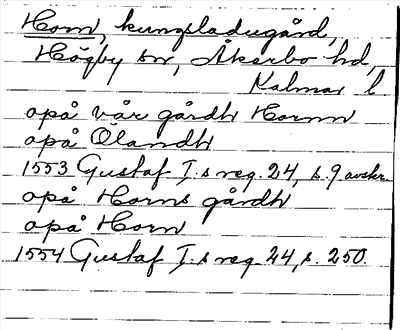 Horn, kungsladugård,
Högby sn, Åkerbo hd,
Kalmar l
opå vår gårdh Hornn
opå Ölandh
1553 Gustaf I.s reg. 24, s. 9 avskr.
opå Horns gårdh
opå Horn
1554 Gustaf I.s reg. 24, s. 250.